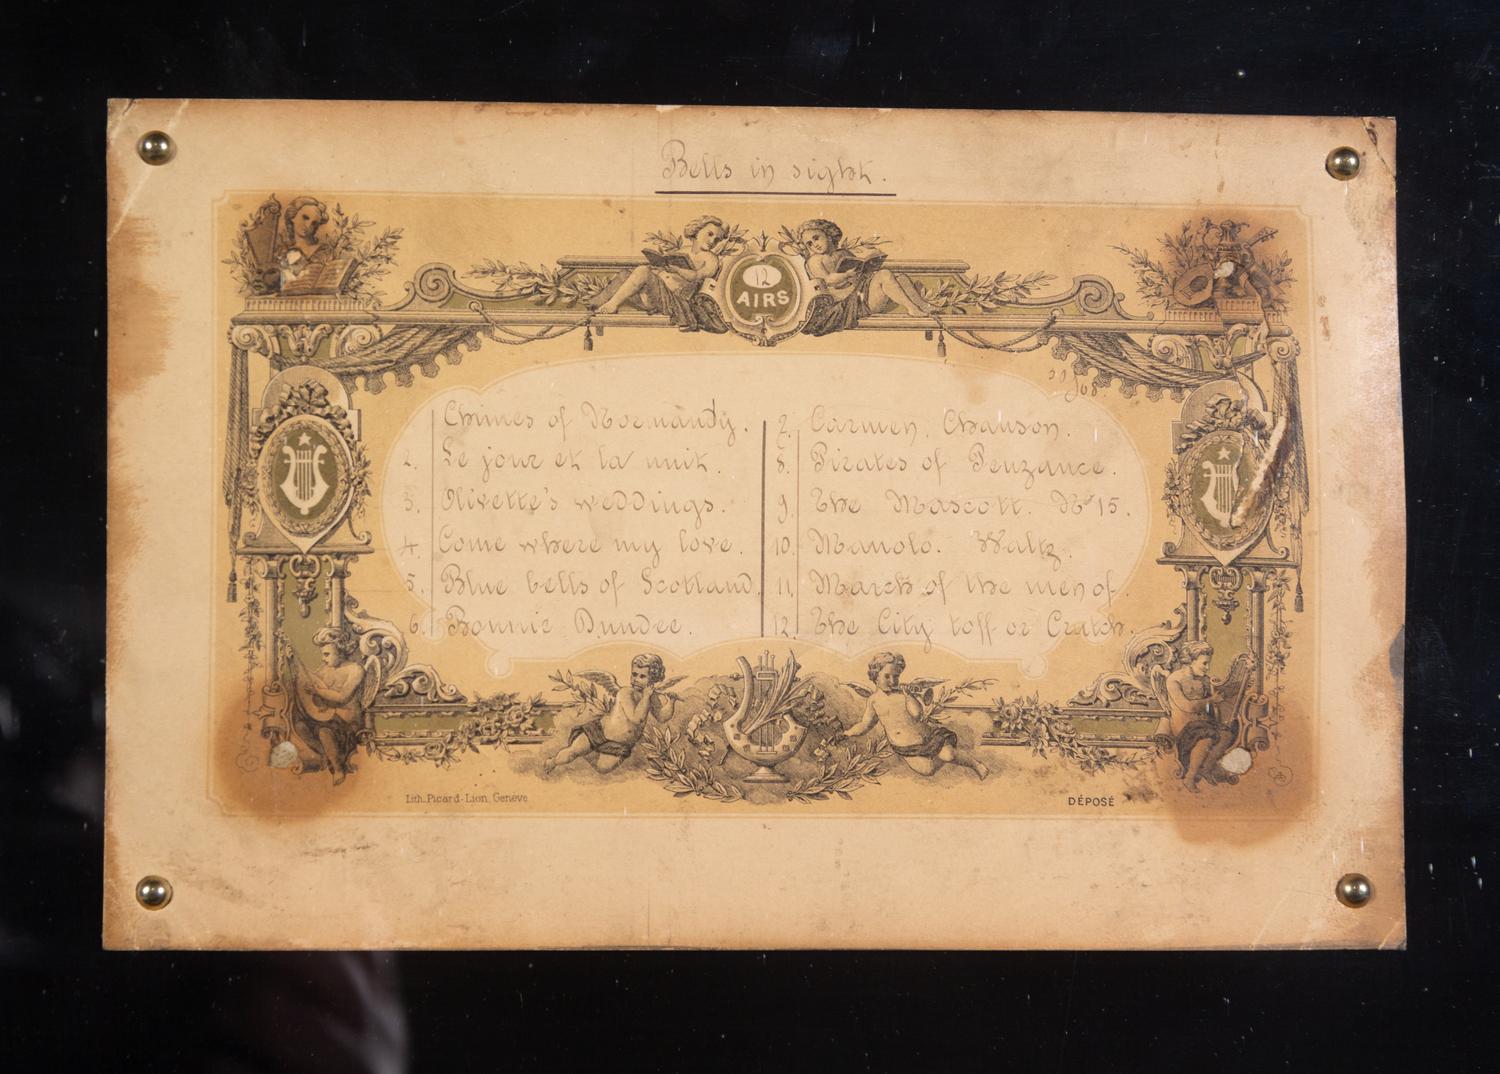 Bells in sight.
12
AIRS
Chimes of Normandy.
2. Le jour et la nuit.
3. Olivette's weddings.
4. Come where my love.
5. Blue bells of Scotland.
6. Bonnie Dundee.
7. Carmen. Chanson.
8. Pirates of Penzance.
9. The Mascott. No 15.
10. Manolo. Waltz.
11. March of the men of.
12. The City toff or Crutch.
Lith. Picard-Lion, Genève
DÉPOSÉ